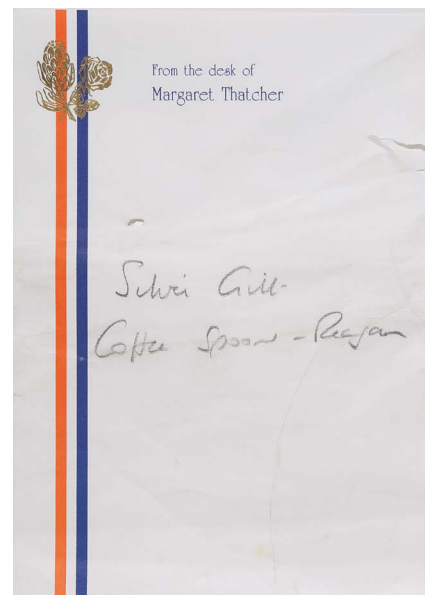 From the desk of
Margaret Thatcher
Silver Gilt-
Coffee Spoons - Reagan